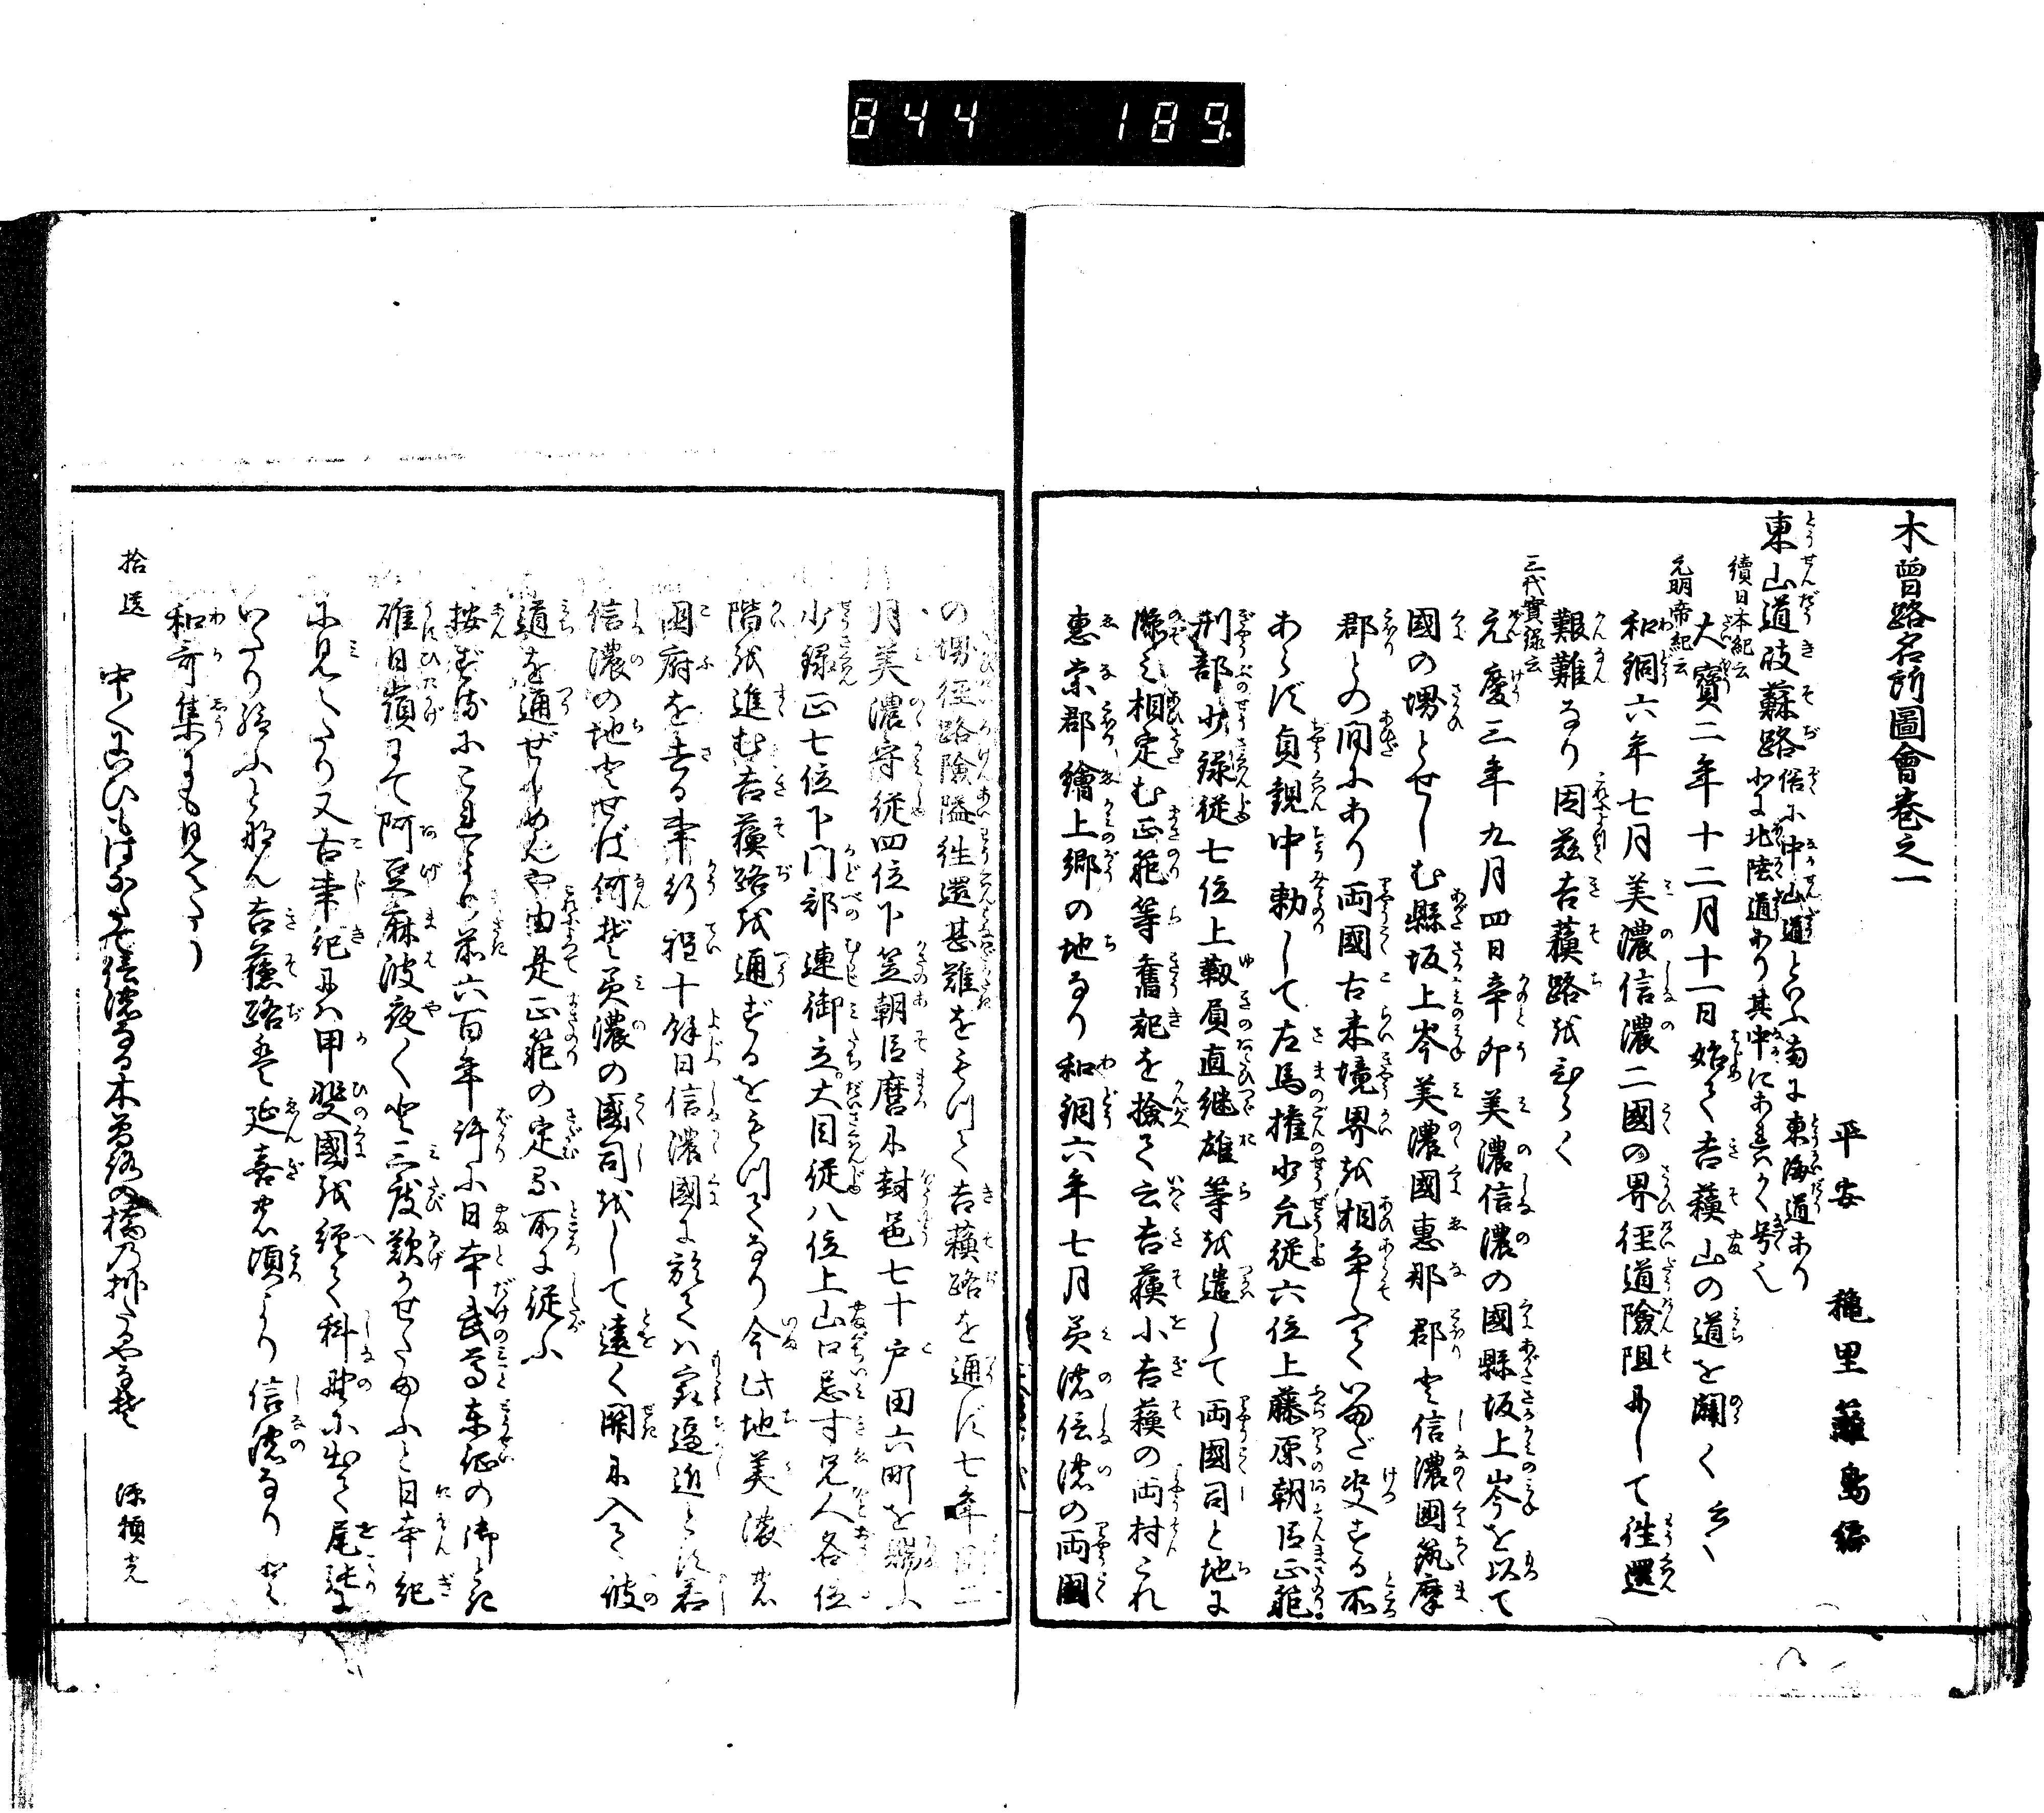 844 189.
木曾路名所圖會巻之一
平安 龝里籬島編
東山道岐蘇路俗に中山道といふ南に東海道あり
北に北陸道あり其中にあれはかく号く
續日本紀云
大寶二年十二月十一日始て吉蘓山の道を闢く云〻
元明帝紀云
和銅六年七月美濃信濃二國の界徑道險阻にして徃還
艱難なり因玆吉蘓路をひらく
三代實録云
元慶三年九月四日辛卯美濃信濃の國縣坂上岑を以て
國の堺とせしむ縣坂上岑美濃國惠那郡と信濃國筑摩
郡との间にあり両國古来境界を相争ふていまだ决する所
あらず貞観中勅して左馬権少允従六位上藤原朝臣正範
刑部少録従七位上靱負直継雄等を遣して両國司と地に
臨み相定む正範等舊記を撿て云吉蘓小吉蘓の両村これ
惠奈郡繪上郷の地なり和銅六年七月美濃信濃の両國
の堺徑路險隘徃還甚難をもつて吉蘓路を通ず七年閏二
月美濃守従四位下笠朝臣麿に封邑七十戸田六町を賜ふ
少録正七位下门部連御立大目従八位上山口忌寸兄人各位
階を進む吉蘓路を通ずるをもつてなり今此地美濃の
國府を去る事行程十餘日信濃國に於ては最逼近とす若
信濃の地とせば何ぞ美濃の國司をして遠く関に入て彼
道を通ぜしめんや由是正範の定る所に従ふ
按ずるにこれより前六百年許に日本武尊東征の御とき
碓日嶺にて阿豆麻波夜〻と三度歎かせたまふと日本紀
に見へたり又古事紀には甲斐國を経て科野に出て尾張に
いたり給ふとなん吉蘓路は延喜の頃より信濃なりと
和哥集にも見へたり
拾遺
中〻にいひもはなたで信濃なる木曽路の橋のかけたるやなぞ
源頼光